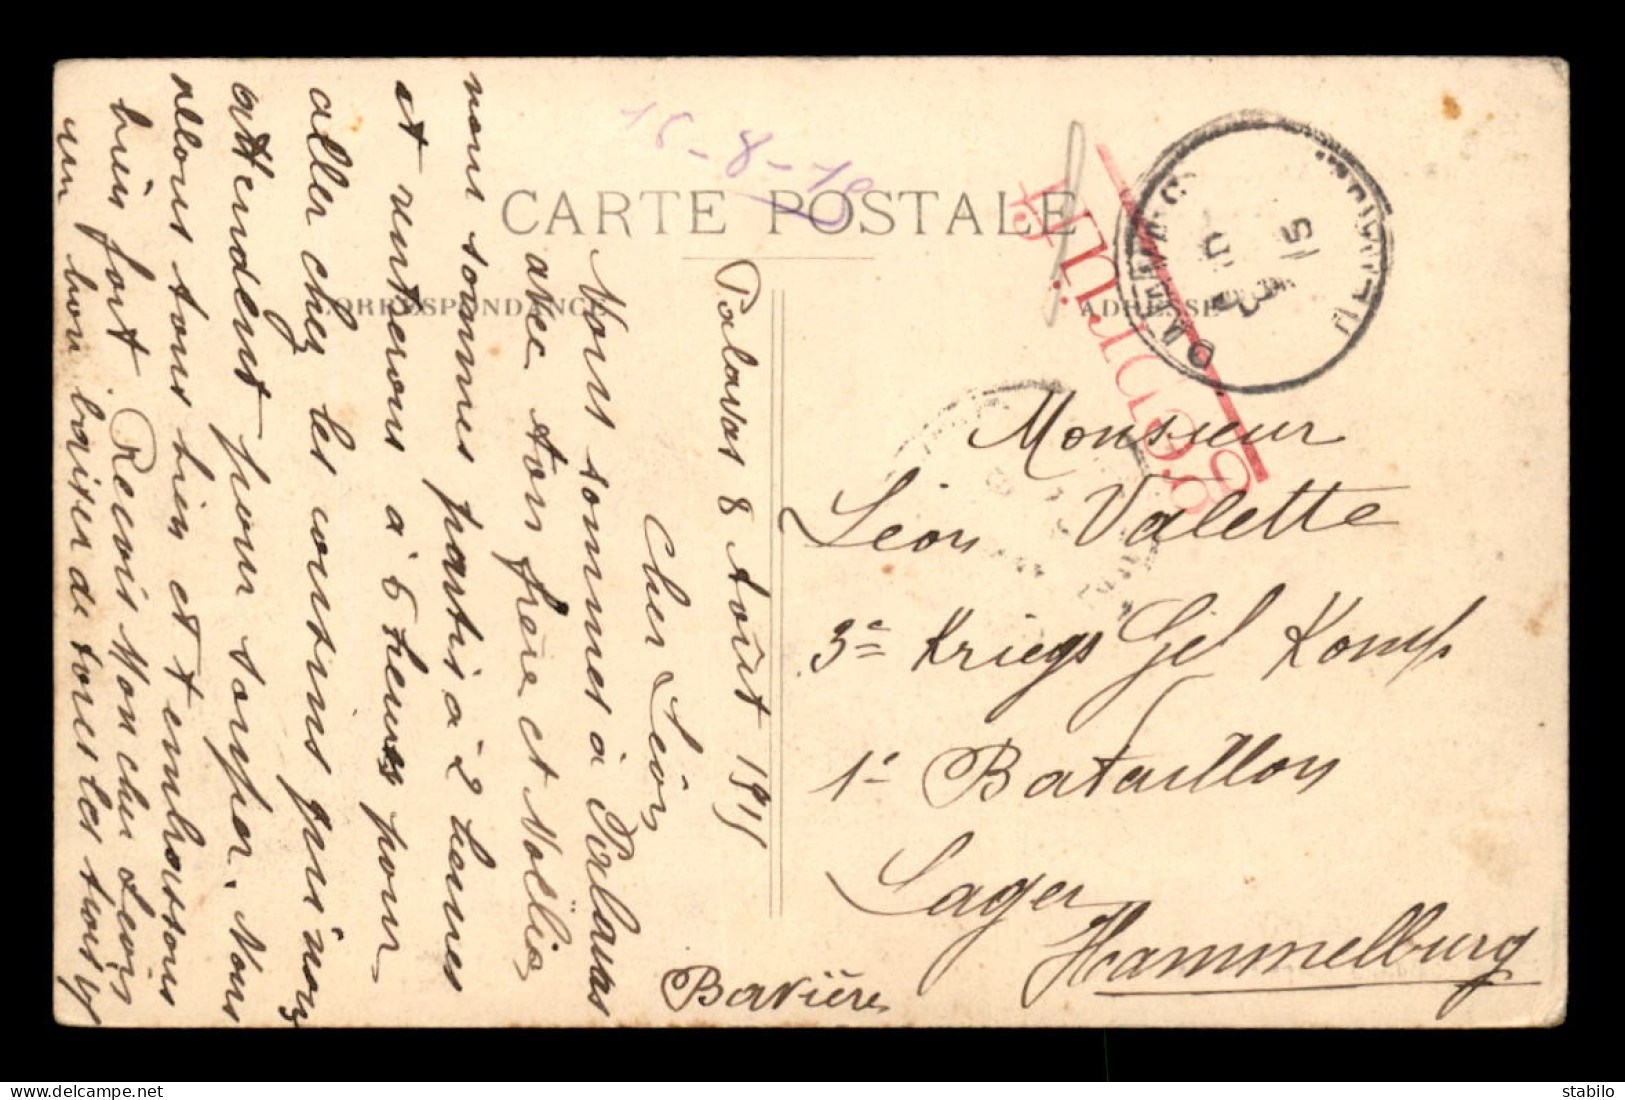 CARTE POSTALE
CORRESPONDANCE
ADRESSE
16-8-15
Geprüft
15
Palavas 8 Août 1915
Cher Léon
Nous sommes à Palavas
avec ton frère et Noëlie
nous sommes partis à 2 heures
et rentrerons à 6 heures pour
aller chez les cousins qui nous
attendent pour souper. Nous
allons tous bien et t'embrassons
bien fort Recois Mon cher Leon
un bon baiser de tous les trois
Monsieur
Léon Valette
3e Kriegs Gef Komp
1e Bataillon
Lager
Hammelburg
Bavière
stabilo